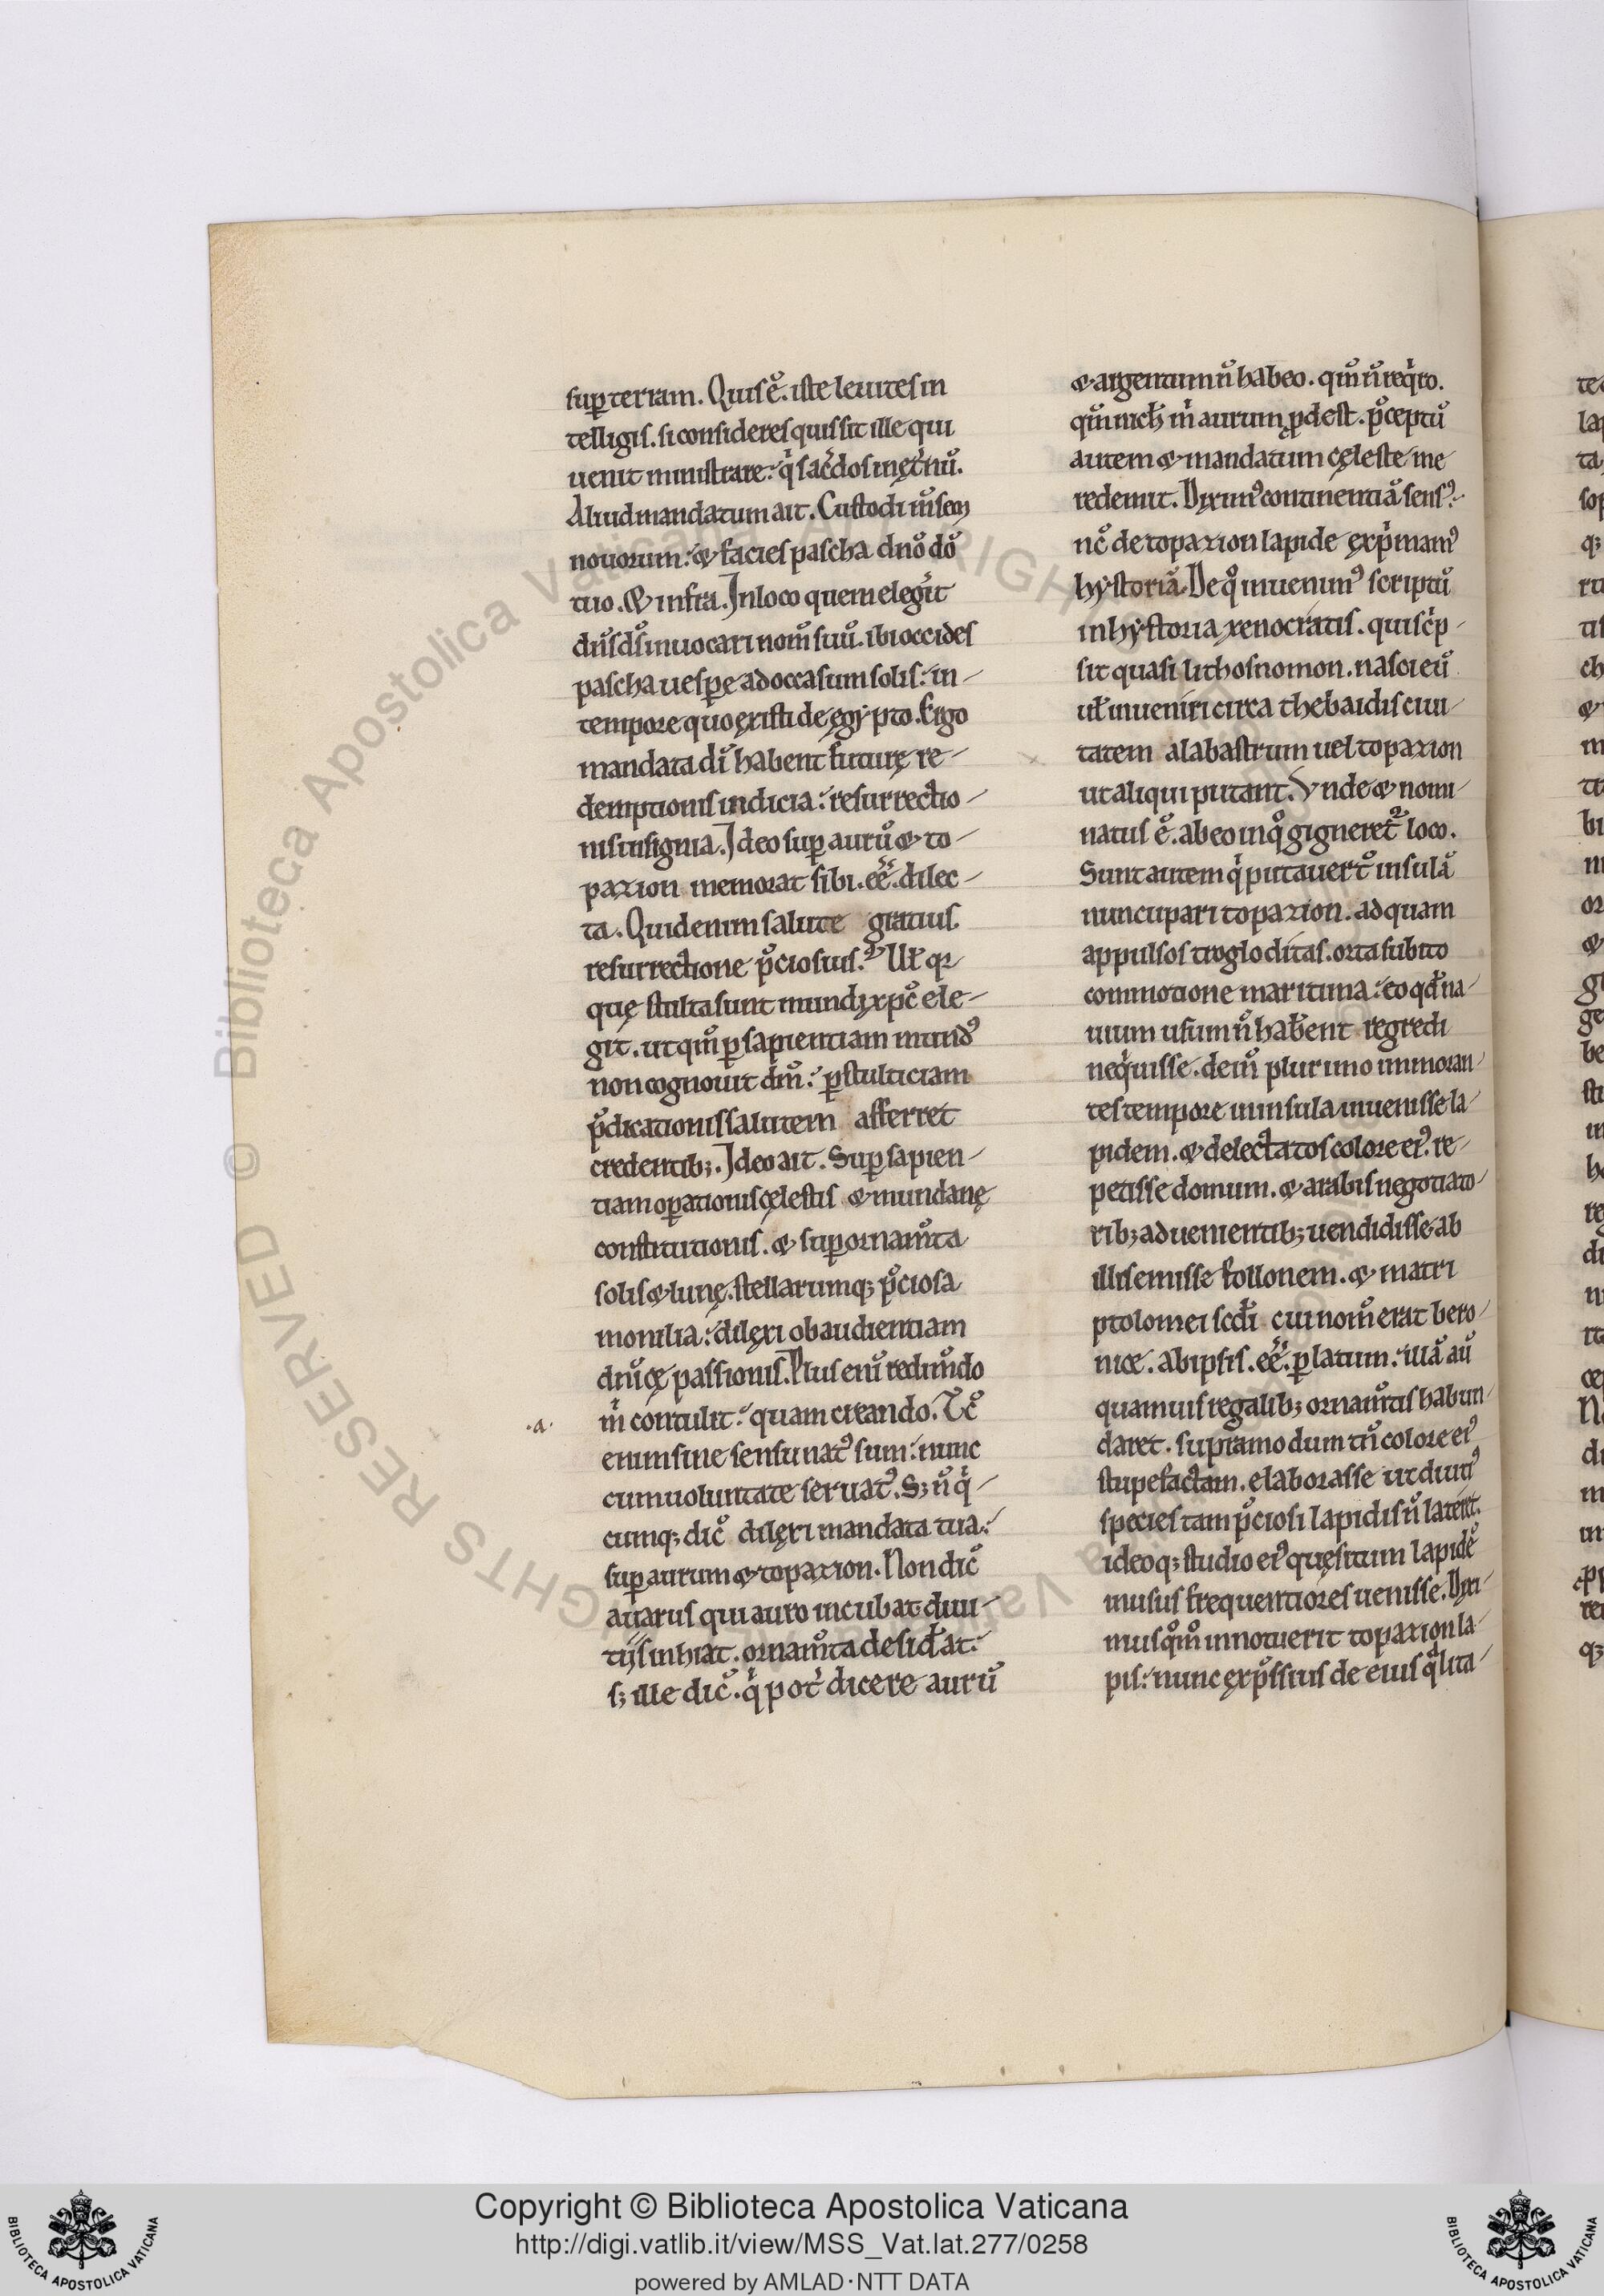 sup terram. Quis ē. iste leuites in
telligis. si consideres quis sit ille qui
uenit ministrare: q̇ sac̄dos in ęt̄nū.
Aliud mandatum ait. Custodi m̄sem
nouorum: & facies pascha dnō dō
tuo. & infra. In loco quem eleḡit
dn̄s ds̄ inuocari nom̄ suū. ibi occides
pascha uespe ad occasum solis: in-
tempore quo existi de egypto. Ergo
mandata dī habent futurę re-
demptionis indicia: resurrectio-
nis insignia. Ideo sup aurū & to-
pazion memorat sibi. eē. dilec-
ta. Quid enim salute gratius.
resurrectione p̄ciosius? Ul̄ qr
quę stulta sunt mundi xpc̄ ele-
git. ut qm̄ p sapientiam mund᾽
non cognouit dm̄: p stulticiam
p̄dicationis salutem afferret
credentib;. Ideo ait. Sup sapien-
tiam opationis cęlestis & mundanę
constitutionis. & sup ornam̄ta
solis & lunę. stellarumq; p̄ciosa
monilia: dilexi obaudientiam
dn̄icę passionis. Plus enī redim̄do
m̄ contulit: quam creando. Tc̄
.a.
enim sine sensu nat᾽ sum: nunc
cum uoluntate seruat᾽. S; n̄ q̇-
cumq; dic̄ dilexi mandata tua:
sup aurum & topazion. Non dic̄
auarus qui auro incubat diui-
tijs inhiat. ornam̄ta desid̄at:
s; ille dic̄. q̇ pot̄ dicere aurū
& argentum n̄ habeo. qm̄ n̄ req̇ro.
qm̄ nich̄ m̄ aurum pdest. p̄ceptū
autem & mandatum cęleste me
redemit. Dixim᾽ continentiā sens᾽:
nc̄ de topazion lapide exp̄mam᾽
hystoriā. De q̊ inuenim᾽ scriptū
in hystoria xenocratis. qui sc̄p-
sit quasi lithosnomon. nasci eū
ul̄ inueniri circa thebaidis ciui-
tatem alabastrum uel topazion
ut aliqui putant. Vnde & nomi-
natus ē. ab eo in q̊ gigneret᾽ loco.
Sunt autem q̇ putauer̄t insulā
nuncupari topazion. ad quam
appulsos trogloditas. orta subito
commotione maritima: eo qd̄ na-
uium usum n̄ hab̄ent regredi
neq̇uisse. dem̄ plurimo immoran-
tes tempore in insula inuenisse la-
pidem. & delectatos colore ei᾽. re-
petisse domum. & arabis negotiato-
rib; aduenientib; uendidisse. ab
illis emisse follonem. & matri
ptolomei scd̄i cui nom̄ erat bero-
nice. ab ipsis. eē. platum: illā aū
quamuis regalib; ornam̄tis habun-
daret. supra modum tn̄ colore ei᾽
stupefactam. elaborasse ut diuti᾽
species tam p̄ciosi lapidis n̄ lateret.
ideoq; studio ei᾽ quęsitum lapidē
in usus frequentiores uenisse. Dixi-
mus q̊m̊ innotuerit topazion la-
pis: nunc exp̄ssius de eius q̄lita-
Copyright © Biblioteca Apostolica Vaticana
http://digi.vatlib.it/view/MSS_Vat.lat.277/0258
powered by AMLAD·NTT DATA
BIBLIOTECA APOSTOLICA VATICANA
BIBLIOTECA APOSTOLICA VATICANA